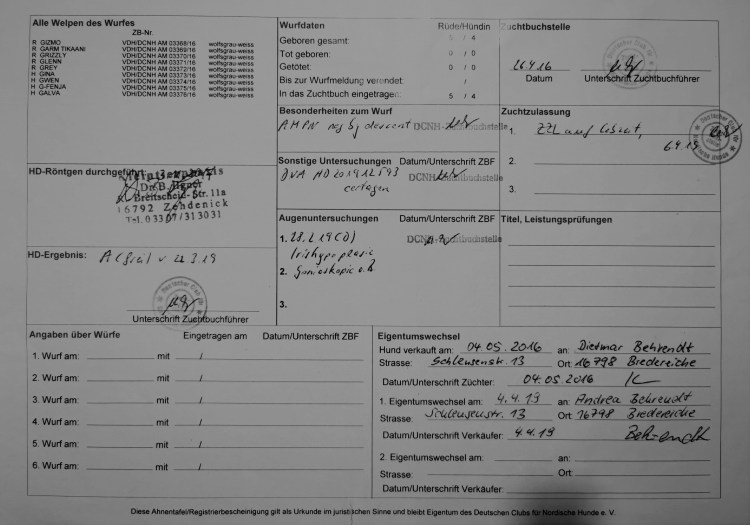 Alle Welpen des Wurfes
ZB-Nr.
R GIZMO VDH/DCNH AM 03368/16 wolfsgrau-weiss
R GARM TIKAANI VDH/DCNH AM 03369/16 wolfsgrau-weiss
R GRIZZLY VDH/DCNH AM 03370/16 wolfsgrau-weiss
R GLENN VDH/DCNH AM 03371/16 wolfsgrau-weiss
R GREY VDH/DCNH AM 03372/16 wolfsgrau-weiss
H GINA VDH/DCNH AM 03373/16 wolfsgrau-weiss
H GWEN VDH/DCNH AM 03374/16 wolfsgrau-weiss
H G-FENJA VDH/DCNH AM 03375/16 wolfsgrau-weiss
H GALVA VDH/DCNH AM 03376/16 wolfsgrau-weiss
HD-Röntgen durchgeführt
Dr. B.
Breitscheid-Str. 11a
16792 Zehdenick
Tel. 03307/313031
HD-Ergebnis: A 22.3.19
Unterschrift Zuchtbuchführer
Wurfdaten Rüde/Hündin
Geboren gesamt: 5 / 4
Tot geboren: 0 / 0
Getötet: 0 / 0
Bis zur Wurfmeldung verendet: /
In das Zuchtbuch eingetragen: 5 / 4
Besonderheiten zum Wurf
AMPN
DCNH-Zuchtbuchstelle
Sonstige Untersuchungen Datum/Unterschrift ZBF
DCNH-Zuchtbuchstelle
Augenuntersuchungen Datum/Unterschrift ZBF
1. 28.2.19 (D)
DCNH-Zuchtbuchstelle
Irishypoplasie
2. Gonioskopie o.B.
3.
Zuchtbuchstelle
26.4.16
Datum Unterschrift Zuchtbuchführer
Zuchtzulassung
1. ZZL auf
6.4.19
2.
3.
Titel, Leistungsprüfungen
Angaben über Würfe Eingetragen am Datum/Unterschrift ZBF
1. Wurf am: mit /
2. Wurf am: mit /
3. Wurf am: mit /
4. Wurf am: mit /
5. Wurf am: mit /
6. Wurf am: mit /
Eigentumswechsel
Hund verkauft am: 04.05.2016 an: Dietmar Behrendt
Strasse: Schleusenstr. 13 Ort: 16798 Bredereiche
Datum/Unterschrift Züchter: 04.05.2016
1. Eigentumswechsel am: 4.4.19 an: Andrea Behrendt
Strasse: Schleusenstr. 13 Ort: 16798 Bredereiche
Datum/Unterschrift Verkäufer: 4.4.19 Behrendt
2. Eigentumswechsel am: an:
Strasse: Ort:
Datum/Unterschrift Verkäufer:
Diese Ahnentafel/Registrierbescheinigung gilt als Urkunde im juristischen Sinne und bleibt Eigentum des Deutschen Clubs für Nordische Hunde e. V.